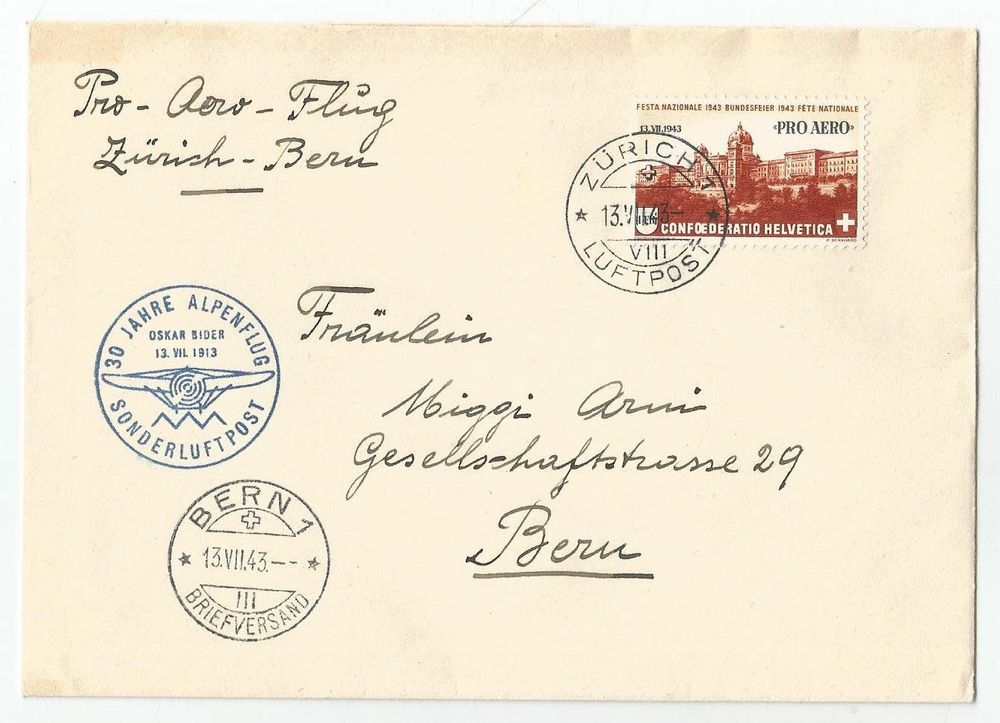 Pro-Aero-Flug
Zürich-Bern
FESTA NAZIONALE 1943 BUNDESFEIER 1943 FÊTE NATIONALE
13.VII.1943
«PRO AERO»
CONFŒDERATIO HELVETICA
P. BERNHARD
ZÜRICH 1
13.VII.43-
VIII
LUFTPOST
30 JAHRE ALPENFLUG
OSKAR BIDER
13. VII. 1913
SONDERLUFTPOST
Fräulein
Miggi Arni
Gesellschaftstrasse 29
Bern
BERN 1
13.VII.43.--
III
BRIEFVERSAND